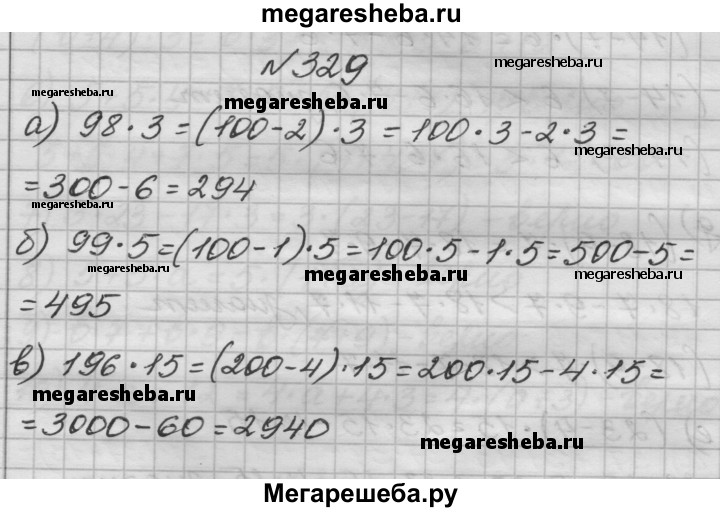 megaresheba.ru
№329
megaresheba.ru
megaresheba.ru
а) 98·3=(100-2)·3=100·3-2·3=
megaresheba.ru
=300-6=294
megaresheba.ru
б) 99·5=(100-1)·5=100·5-1·5=500-5=
megaresheba.ru
megaresheba.ru
megaresheba.ru
=495
в) 196·15=(200-4)·15=200·15-4·15=
megaresheba.ru
=3000-60=2940
megaresheba.ru
Мегарешеба.ру